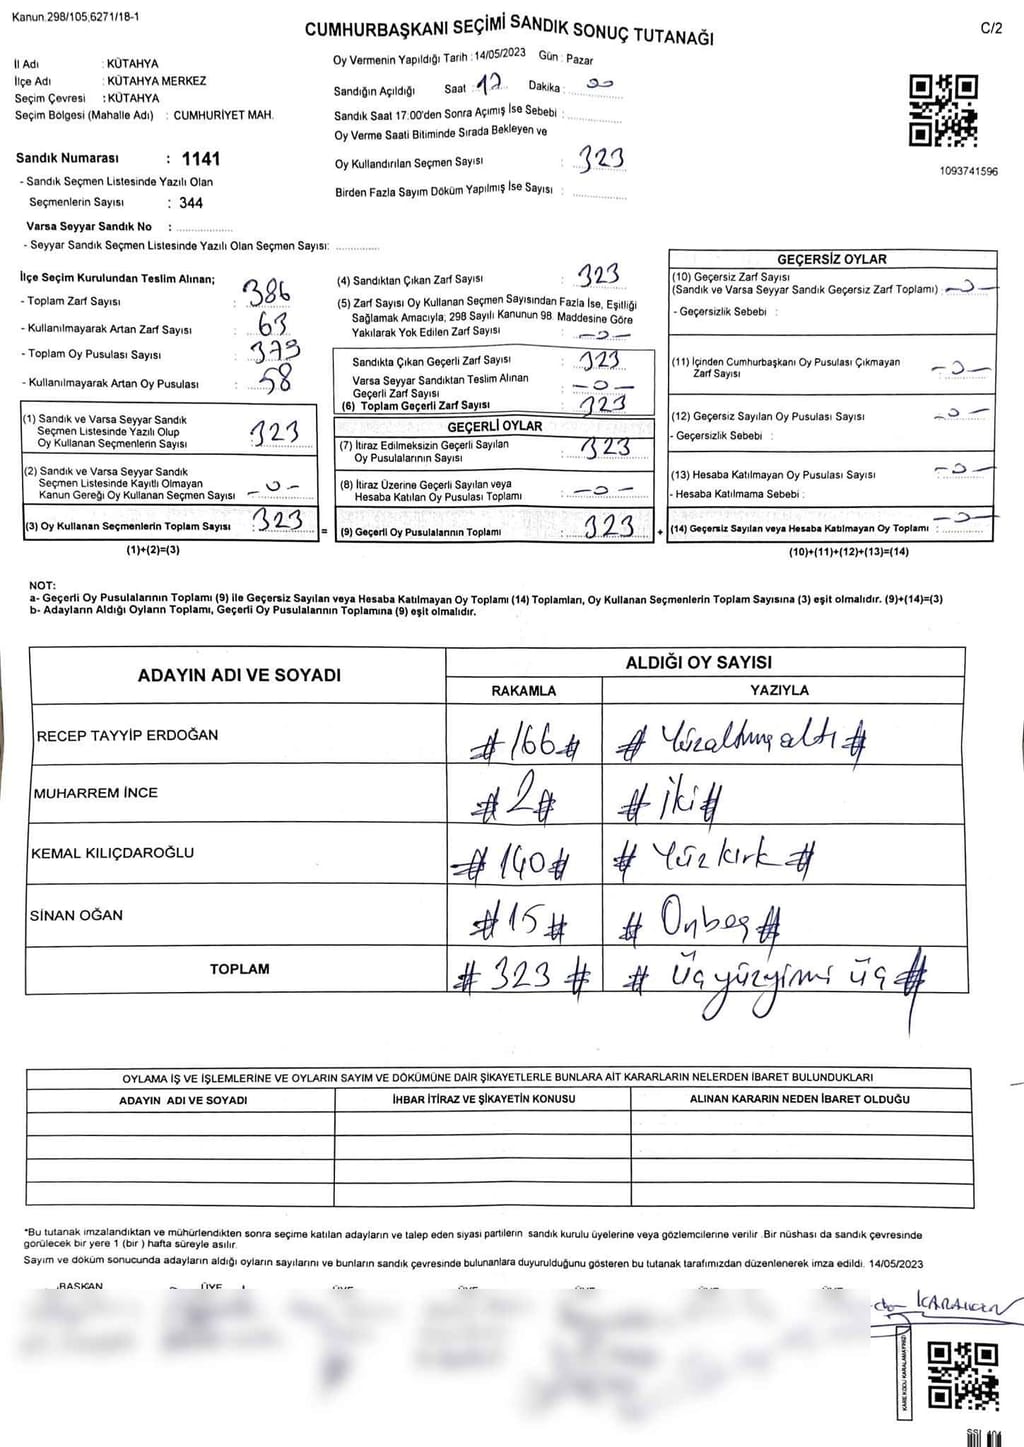 Kanun.298/105,6271/18-1
CUMHURBAŞKANI SEÇİMİ SANDIK SONUÇ TUTANAĞI
C/2
İl Adı : KÜTAHYA
İlçe Adı : KÜTAHYA MERKEZ
Seçim Çevresi : KÜTAHYA
Seçim Bölgesi (Mahalle Adı) : CUMHURİYET MAH.
Sandık Numarası : 1141
- Sandık Seçmen Listesinde Yazılı Olan
Seçmenlerin Sayısı : 344
Varsa Seyyar Sandık No :
- Seyyar Sandık Seçmen Listesinde Yazılı Olan Seçmen Sayısı:
Oy Vermenin Yapıldığı Tarih : 14/05/2023 Gün : Pazar
Sandığın Açıldığı Saat : 17 Dakika : 00
Sandık Saat 17:00'den Sonra Açımış İse Sebebi :
Oy Verme Saati Bitiminde Sırada Bekleyen ve
Oy Kullandırılan Seçmen Sayısı : 323
Birden Fazla Sayım Döküm Yapılmış İse Sayısı :
1093741596
İlçe Seçim Kurulundan Teslim Alınan;
- Toplam Zarf Sayısı : 386
- Kullanılmayarak Artan Zarf Sayısı : 63
- Toplam Oy Pusulası Sayısı : 379
- Kullanılmayarak Artan Oy Pusulası : 58
(1) Sandık ve Varsa Seyyar Sandık
Seçmen Listesinde Yazılı Olup
Oy Kullanan Seçmenlerin Sayısı : 323
(2) Sandık ve Varsa Seyyar Sandık
Seçmen Listesinde Kayıtlı Olmayan
Kanun Gereği Oy Kullanan Seçmen Sayısı : -0-
(3) Oy Kullanan Seçmenlerin Toplam Sayısı : 323
(1)+(2)=(3)
(4) Sandıktan Çıkan Zarf Sayısı : 323
(5) Zarf Sayısı Oy Kullanan Seçmen Sayısından Fazla İse, Eşitliği
Sağlamak Amacıyla, 298 Sayılı Kanunun 98. Maddesine Göre
Yakılarak Yok Edilen Zarf Sayısı : -0-
Sandıkta Çıkan Geçerli Zarf Sayısı : 323
Varsa Seyyar Sandıktan Teslim Alınan
Geçerli Zarf Sayısı : -0-
(6) Toplam Geçerli Zarf Sayısı : 323
GEÇERLİ OYLAR
(7) İtiraz Edilmeksizin Geçerli Sayılan
Oy Pusulalarının Sayısı : 323
(8) İtiraz Üzerine Geçerli Sayılan veya
Hesaba Katılan Oy Pusulası Toplamı : -0-
= (9) Geçerli Oy Pusulalarının Toplamı : 323 +
GEÇERSİZ OYLAR
(10) Geçersiz Zarf Sayısı
(Sandık ve Varsa Seyyar Sandık Geçersiz Zarf Toplamı) : -0-
- Geçersizlik Sebebi :
(11) İçinden Cumhurbaşkanı Oy Pusulası Çıkmayan
Zarf Sayısı : -0-
(12) Geçersiz Sayılan Oy Pusulası Sayısı : -0-
- Geçersizlik Sebebi :
(13) Hesaba Katılmayan Oy Pusulası Sayısı : -0-
- Hesaba Katılmama Sebebi :
(14) Geçersiz Sayılan veya Hesaba Katılmayan Oy Toplamı : -0-
(10)+(11)+(12)+(13)=(14)
NOT:
a- Geçerli Oy Pusulalarının Toplamı (9) ile Geçersiz Sayılan veya Hesaba Katılmayan Oy Toplamı (14) Toplamları, Oy Kullanan Seçmenlerin Toplam Sayısına (3) eşit olmalıdır. (9)+(14)=(3)
b- Adayların Aldığı Oyların Toplamı, Geçerli Oy Pusulalarının Toplamına (9) eşit olmalıdır.
ADAYIN ADI VE SOYADI
ALDIĞI OY SAYISI
RAKAMLA YAZIYLA
RECEP TAYYİP ERDOĞAN # 166 # # Yüzaltmış altı #
MUHARREM İNCE # 2 # # İki #
KEMAL KILIÇDAROĞLU # 140 # # Yüz kırk #
SİNAN OĞAN # 15 # # Onbeş #
TOPLAM # 323 # # Üçyüzyirmi üç #
OYLAMA İŞ VE İŞLEMLERİNE VE OYLARIN SAYIM VE DÖKÜMÜNE DAİR ŞİKAYETLERLE BUNLARA AİT KARARLARIN NELERDEN İBARET BULUNDUKLARI
ADAYIN ADI VE SOYADI İHBAR İTİRAZ VE ŞİKAYETİN KONUSU ALINAN KARARIN NEDEN İBARET OLDUĞU
*Bu tutanak imzalandıktan ve mühürlendikten sonra seçime katılan adayların ve talep eden siyasi partilerin sandık kurulu üyelerine veya gözlemcilerine verilir .Bir nüshası da sandık çevresinde
görülecek bir yere 1 (bir ) hafta süreyle asılır.
Sayım ve döküm sonucunda adayların aldığı oyların sayılarını ve bunların sandık çevresinde bulunanlara duyurulduğunu gösteren bu tutanak tarafımızdan düzenlenerek imza edildi. 14/05/2023
BAŞKAN ÜYE
KARE KODU KARALAMAYINIZ!